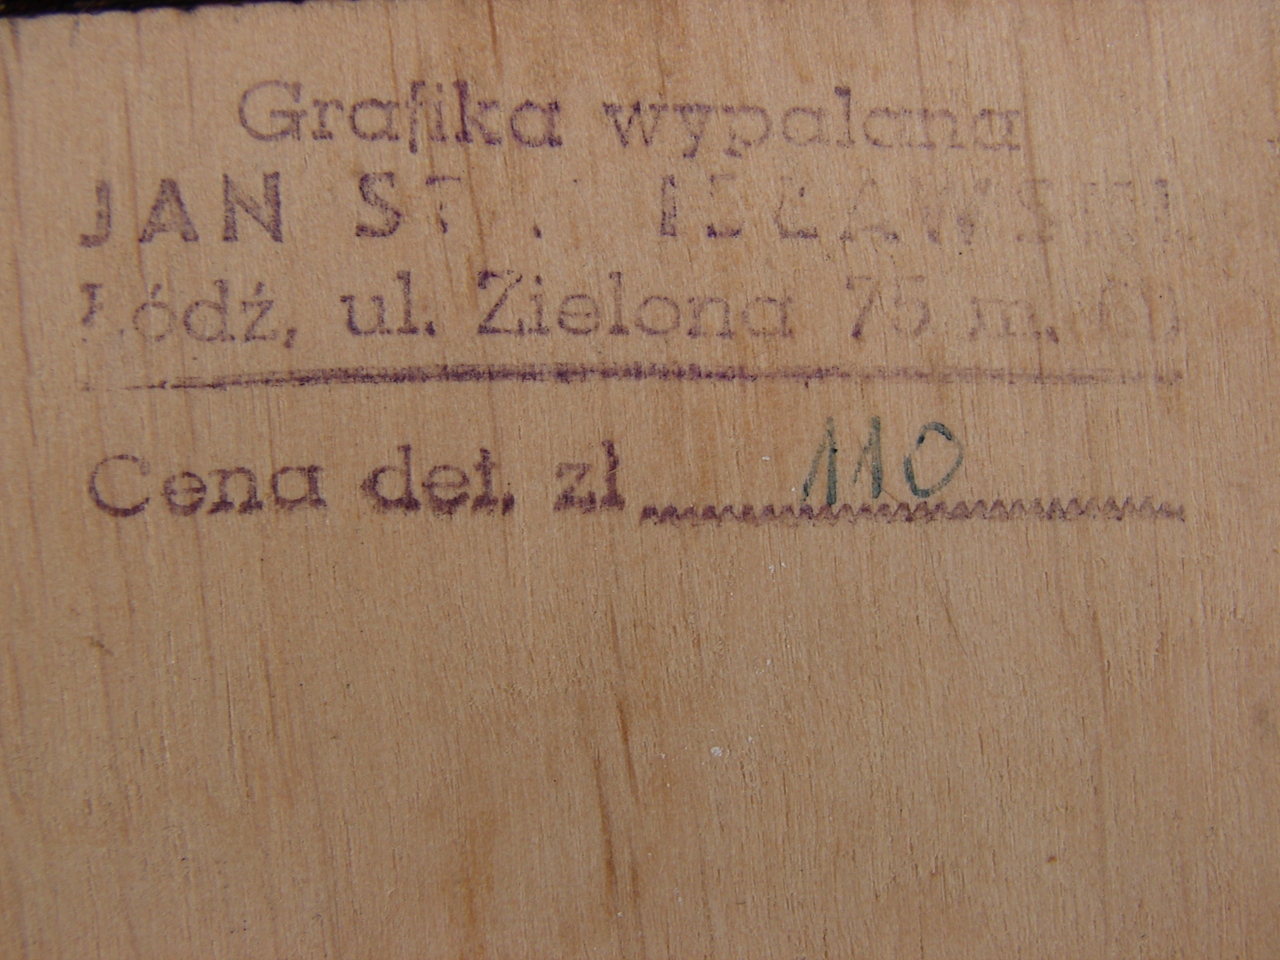 Grafika wypalana
JAN
Łódź, ul. Zielona 75 m.
Cena det. zł 110